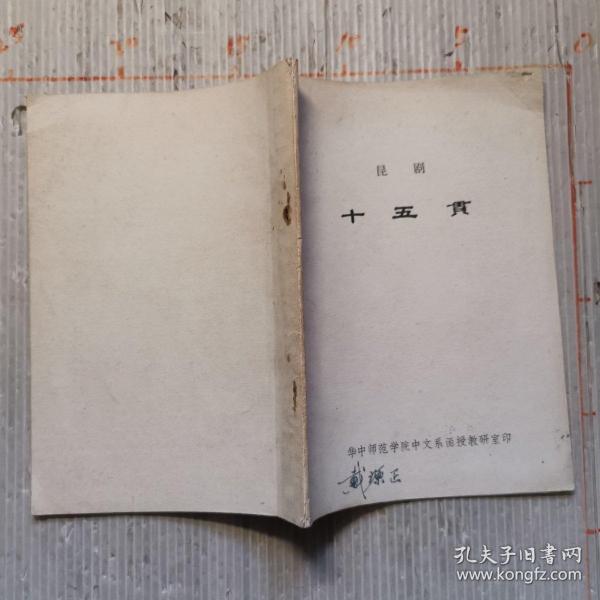 25 20 15 10 5 0
0
昆剧
十五贯
华中师范学院中文系函授教研室印
戴 正
孔夫子旧书网
www.kongfz.com